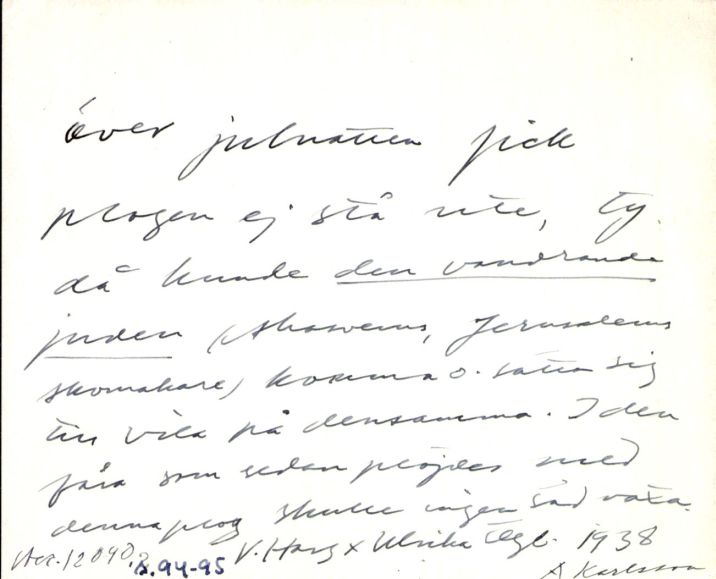 över julnatten fick
plogen ej stå ute, ty
då kunde den vandrande
juden (Ahasverus, Jerusalems
skomakare) komma o. sätta sig
till vila på densamma. I den
fåra som sedan plöjdes med
denna plog skulle ingen säd växa.
V. Harg x Ulrika Ögl. 1938
Acc. 12090, s. 94-95
A Karlsson